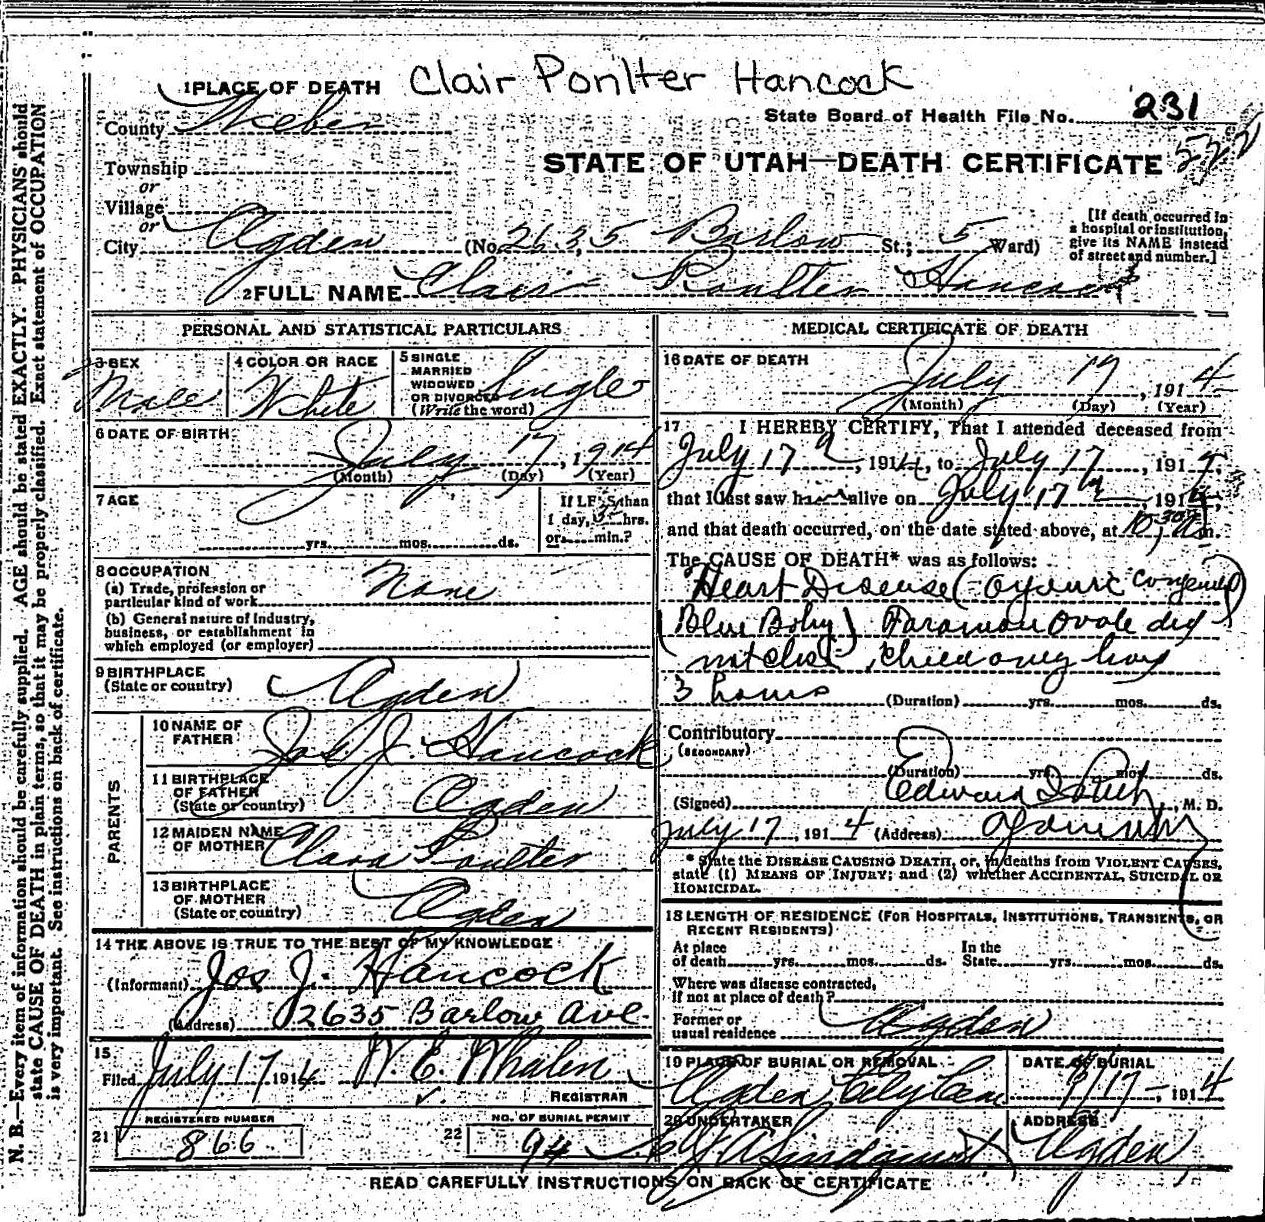 1 PLACE OF DEATH Clair Ponlter Hancock
County Weber
State Board of Health File No. 231
Township
or
STATE OF UTAH—DEATH CERTIFICATE 522
Village
or
City Ogden (No. 2635 Barlow St.; 5 Ward)
[If death occurred in
a hospital or institution,
give its NAME instead
of street and number.]
2 FULL NAME Clair Poulter Hancock
PERSONAL AND STATISTICAL PARTICULARS
3 SEX
Male
4 COLOR OR RACE
White
5 SINGLE
MARRIED
WIDOWED
OR DIVORCED
(Write the word)
Single
6 DATE OF BIRTH
July 17, 1914
(Month) (Day) (Year)
7 AGE
yrs. mos. ds.
If LESS than
1 day, 3 hrs.
or min.?
8 OCCUPATION
(a) Trade, profession or
particular kind of work None
(b) General nature of industry,
business, or establishment in
which employed (or employer)
9 BIRTHPLACE
(State or country) Ogden
PARENTS
10 NAME OF
FATHER Jos J. Hancock
11 BIRTHPLACE
OF FATHER
(State or country) Ogden
12 MAIDEN NAME
OF MOTHER Clara Poulter
13 BIRTHPLACE
OF MOTHER
(State or country) Ogden
14 THE ABOVE IS TRUE TO THE BEST OF MY KNOWLEDGE
(Informant) Jos J. Hancock
(Address) 2635 Barlow Ave.
15
Filed July 17 1914 W E. Whalen
REGISTRAR
REGISTERED NUMBER
21 866
NO. OF BURIAL PERMIT
22 94
MEDICAL CERTIFICATE OF DEATH
16 DATE OF DEATH
July 17, 1914
(Month) (Day) (Year)
17 I HEREBY CERTIFY, That I attended deceased from
July 17, 1914, to July 17, 191
that I last saw him alive on July 17, 1914,
and that death occurred, on the date stated above, at 10:30 a m.
The CAUSE OF DEATH* was as follows:
Heart Disease (
(Blue Boby) Foramen Ovale did
not close, child only
3 hours (Duration) yrs. mos. ds.
Contributory
(SECONDARY)
(Duration) yrs. mos. ds.
(Signed) Edward I M. D.
July 17, 1914 (Address) Ogden
* State the DISEASE CAUSING DEATH, or, in deaths from VIOLENT CAUSES,
state (1) MEANS OF INJURY; and (2) whether ACCIDENTAL, SUICIDAL OR
HOMICIDAL.
18 LENGTH OF RESIDENCE (FOR HOSPITALS, INSTITUTIONS, TRANSIENTS, OR
RECENT RESIDENTS)
At place
of death yrs. mos. ds.
In the
State yrs. mos. ds.
Where was disease contracted,
if not at place of death?
Former or
usual residence Ogden
19 PLACE OF BURIAL OR REMOVAL
Ogden City Cem
DATE OF BURIAL
7/17-, 1914
20 UNDERTAKER
A Lindquist
ADDRESS
Ogden
READ CAREFULLY INSTRUCTIONS ON BACK OF CERTIFICATE
N. B.—Every item of information should be carefully supplied. AGE should be stated EXACTLY. PHYSICIANS should
state CAUSE OF DEATH in plain terms, so that it may be properly classified. Exact statement of OCCUPATION
is very important. See instructions on back of certificate.